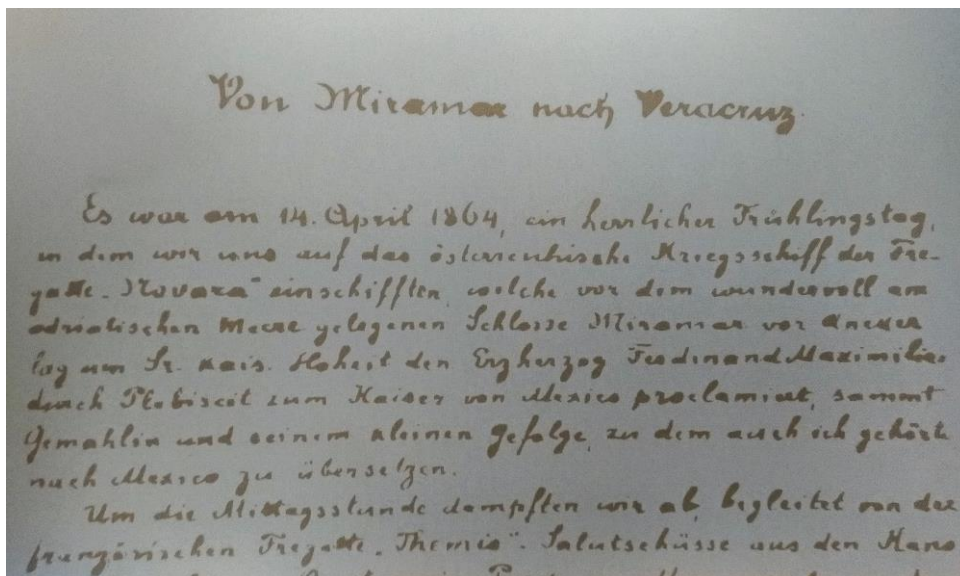 Von Miramar nach Veracruz.
Es war am 14. April 1864, ein herrlicher Frühlingstag,
an dem wir uns auf das österreichische Kriegsschiff der Fre-
gatte „Novara" einschifften, welche vor dem wundervoll am
adriatischen Meere gelegenen Schlosse Miramar vor Anker
lag um Sr. kais. Hoheit den Erzherzog Ferdinand Maximilian
durch Plebiscit zum Kaiser von Mexico proclamirt, sammt
Gemahlin und seinem kleinen Gefolge, zu dem auch ich gehörte
nach Mexico zu übersetzen.
Um die Mittagsstunde dampften wir ab, begleitet von der
französischen Fregatte „Themis". Salutschüsse aus den